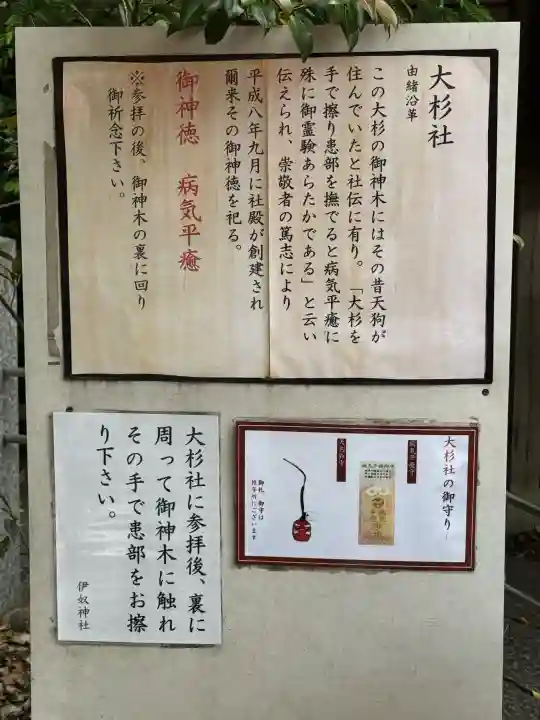 大杉社
由緒沿革
この大杉の御神木にはその昔天狗が
住んでいたと社伝に有り。「大杉を
手で擦り患部を撫でると病気平癒に
殊に御霊験あらたかである」と云い
伝えられ、崇敬者の篤志により
平成八年九月に社殿が創建され
爾来その御神徳を祀る。
御神徳 病気平癒
※参拝の後、御神木の裏に回り
御祈念下さい。
大杉社の御守り
御札、御守は
授与所にございます
大杉社に参拝後、裏に
周って御神木に触れ
その手で患部をお擦
り下さい。
伊奴神社